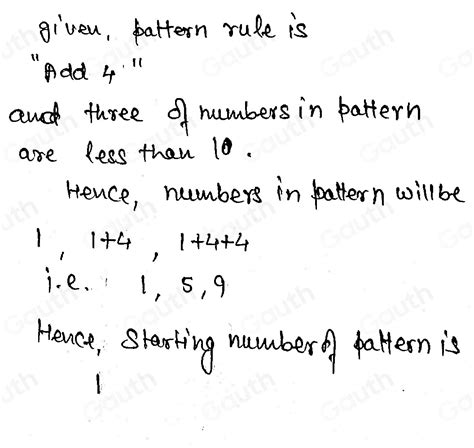 given, pattern rule is
"Add 4."
and three of numbers in pattern
are less than 10.
Hence, numbers in pattern will be
1, 1+4, 1+4+4
i.e. 1, 5, 9
Hence, Starting number of pattern is
1